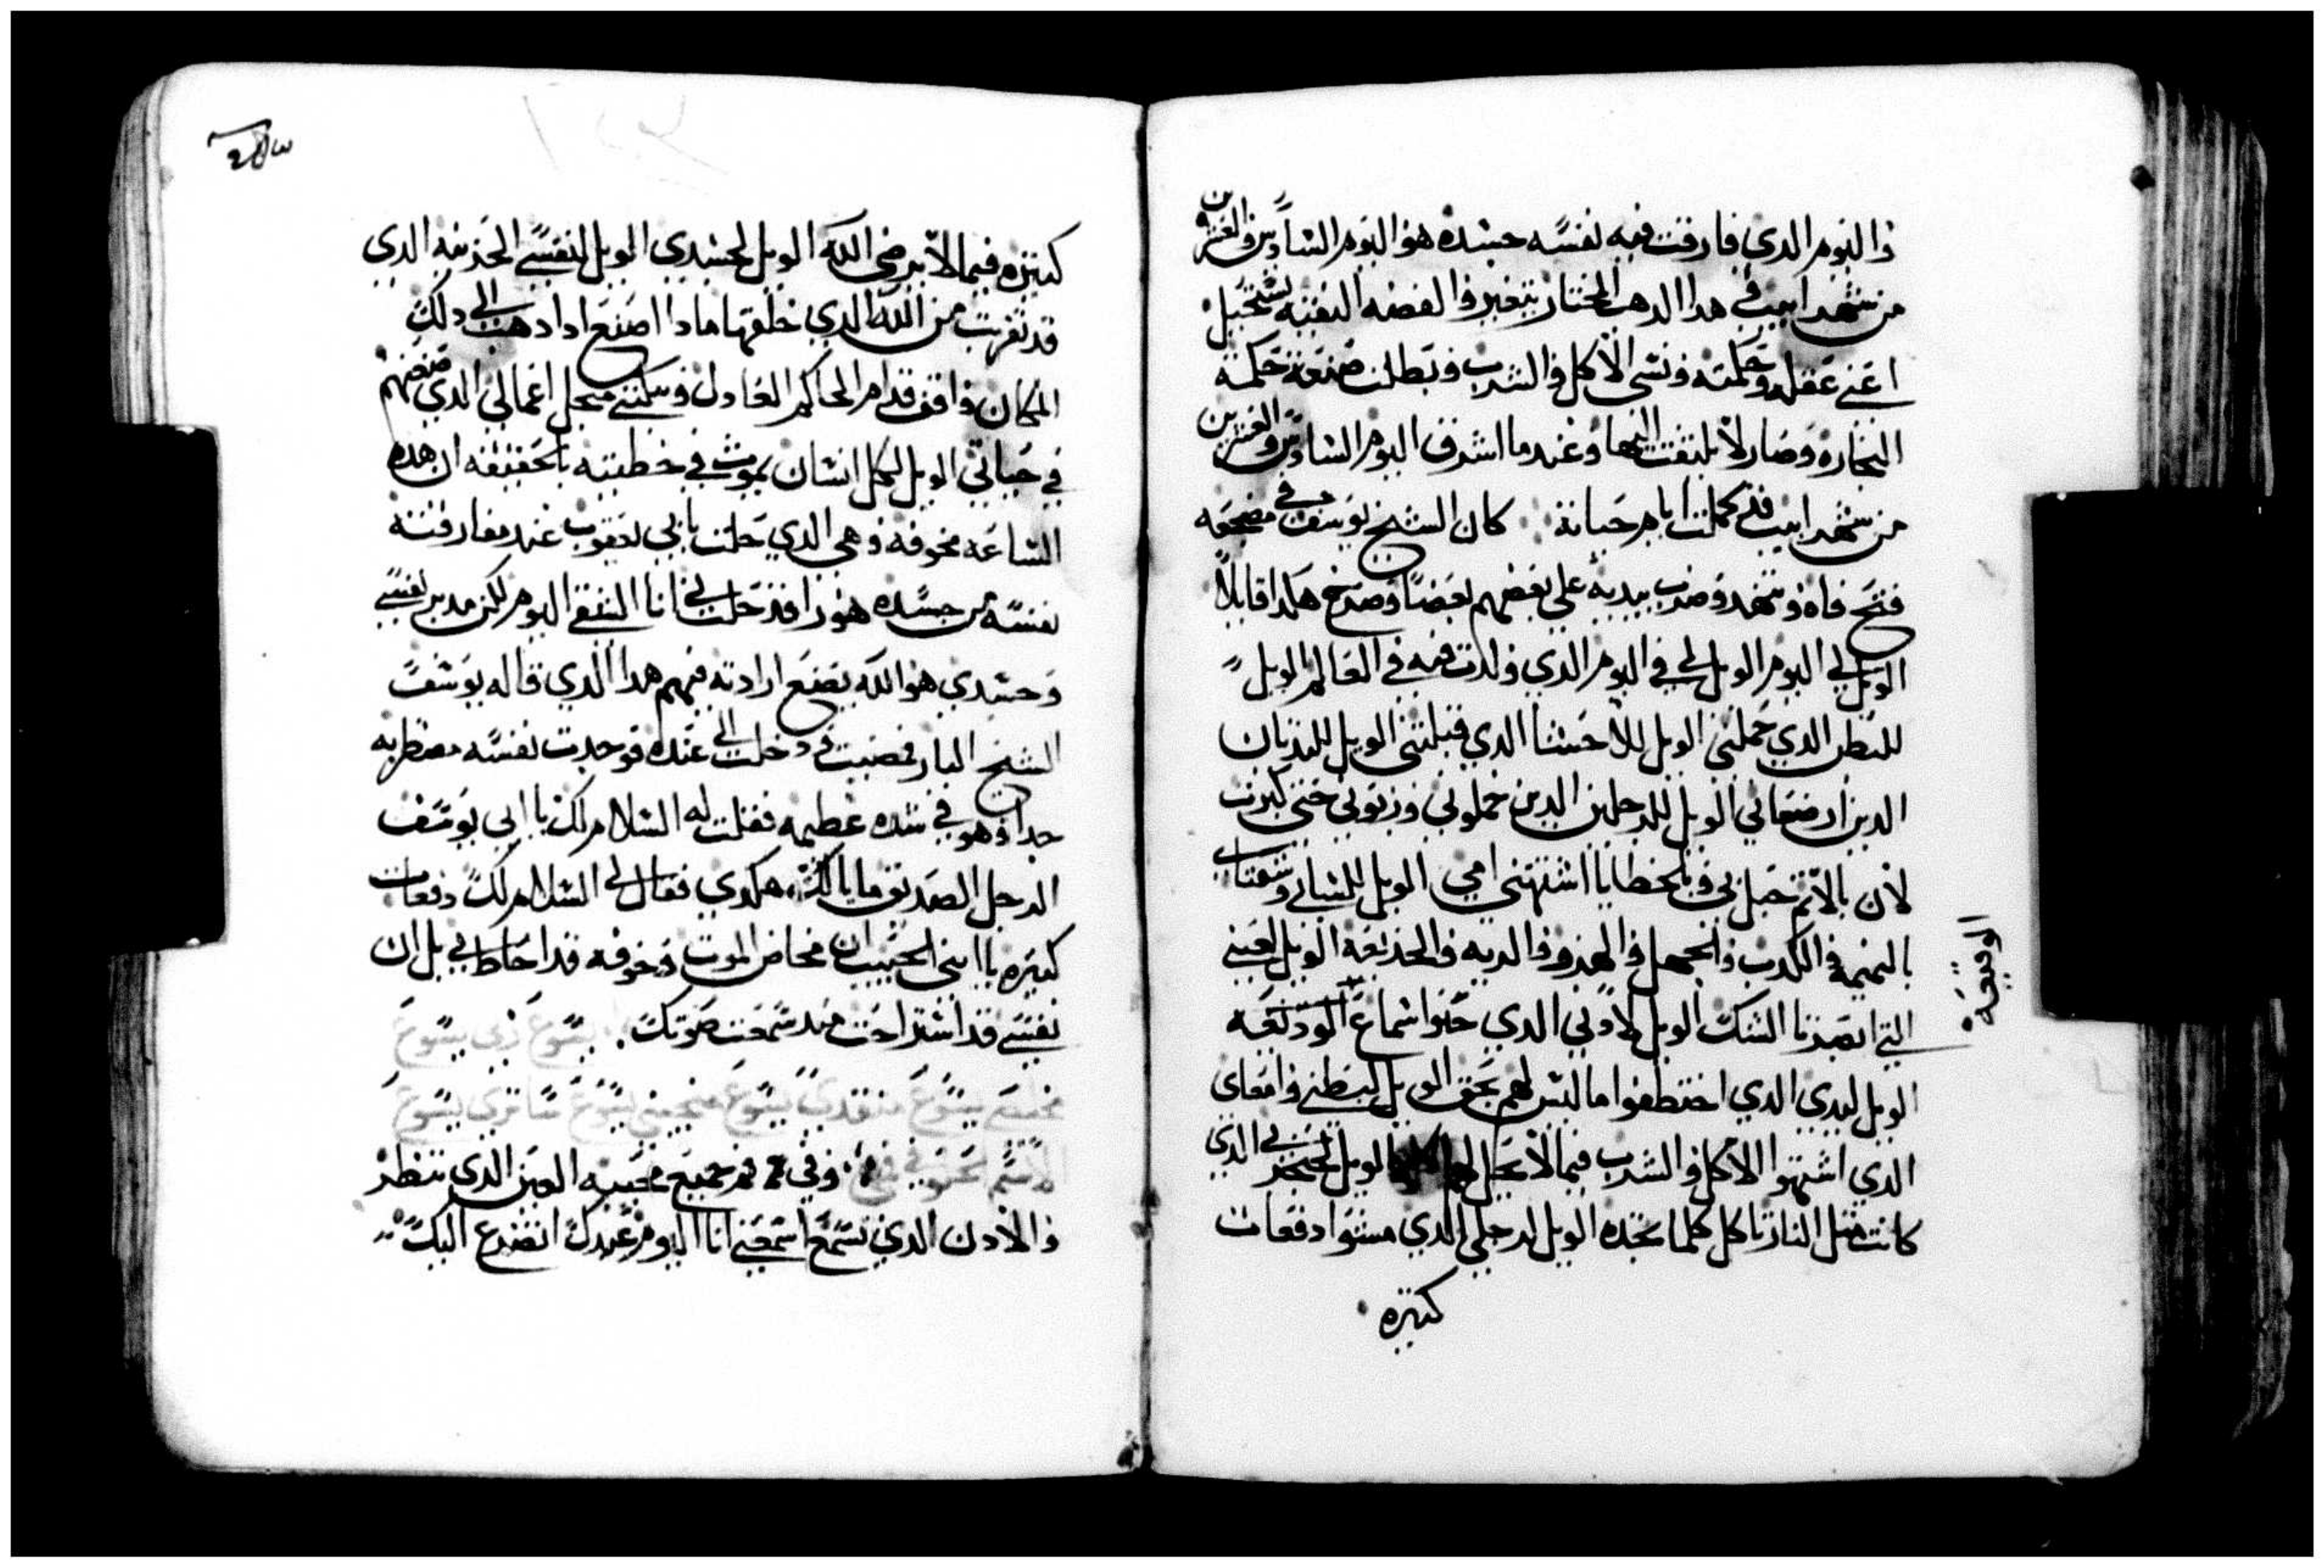 واليوم الدي فارقت فيه نفسه جسده هو اليوم السادس والعشرين
من شهر ابيب في هدا الدهب المختار يتغير والفضه النقيه تستحيل
اعني عقله وحكمته ونسي الاكل والشرب وبطلت صنعة حكمة
النجاره وصار لا يلتفت اليها وعندما اشرق اليوم السادس والعشرين
من شهر ابيب قد كملت ايام حياته كان الشيخ يوسف في مضجعه
فتح فاه وتنهد وضرب بيديه على بعضهم بعضا وصرخ هكدا قايلا
الويل لي اليوم الويل لي في اليوم الدي ولدت فيه في العالم الويل
للبطن الدي حملتني الويل للاحشا الدي قبلتني الويل للتديان
الدين ارضعاني الويل للرجلين الدين حملوني وربوني حتى كبرت
لان بالاتم حبل بي وبالخطايا اشتهتني امي الويل للساني وشفتاي
بالنميمه والكدب والجهل والهزو والديه والخديعه الويل لعيني
التي ابصرتا الشك الويل لادني الدي حبوا سماع الوديعه
الوقيعه
الويل ليدي الدي اختطفوا ما ليس لهم بحق الويل لبطني وامعاي
الدي اشتهوا الاكل والشرب فيما لا يحل لهم الويل لحنجرتي الدي
كانت متل النار تاكل كلما تجده الويل لرجلي الدي مشوا دفعات
كتيره
كتيره فيما لا يرضي الله الويل لجسدي الويل لنفسي الحزينه الدي
قد تغربت من الله الدي خلقها مادا اصنع ادا دهبت الى دلك
المكان واقف قدام الحاكم العادل وبكتني من اجل اعمالي الدي صنعتهم
في حياتي الويل لكل انسان يموت في خطيته بالحقيقه ان هده
الساعه مخوفه وهي الدي حلت بابي يعقوب عند مفارقته
نفسه من جسده هودا قد حلت بي انا الشقي اليوم لكن مدبر نفسي
وجسدي هو الله يصنع ارادته فيهم هدا الدي قاله يوسف
الشيخ البار فمضيت ودخلت الى عنده فوجدت نفسه مضطربه
جدا وهو في شده عظيمه فقلت له السلام لك يا ابي يوسف
الرجل الصديق ما بالك هكدي فقال لي السلام لك دفعات
كتيره يا ابني الحبيب ان مخاض الموت وخوفه قد احاط بي بل ان
نفسي قد استراحت مند سمعت صوتك يسوع ربي يسوع
مخلصي يسوع منقدي يسوع منجيني يسوع ساتري يسوع
الاسم الحلو في في وفي فم جميع محبيه العين الدي تنظر
والادن الدي تسمع اسمعني انا اليوم عبدك اتضرع اليك